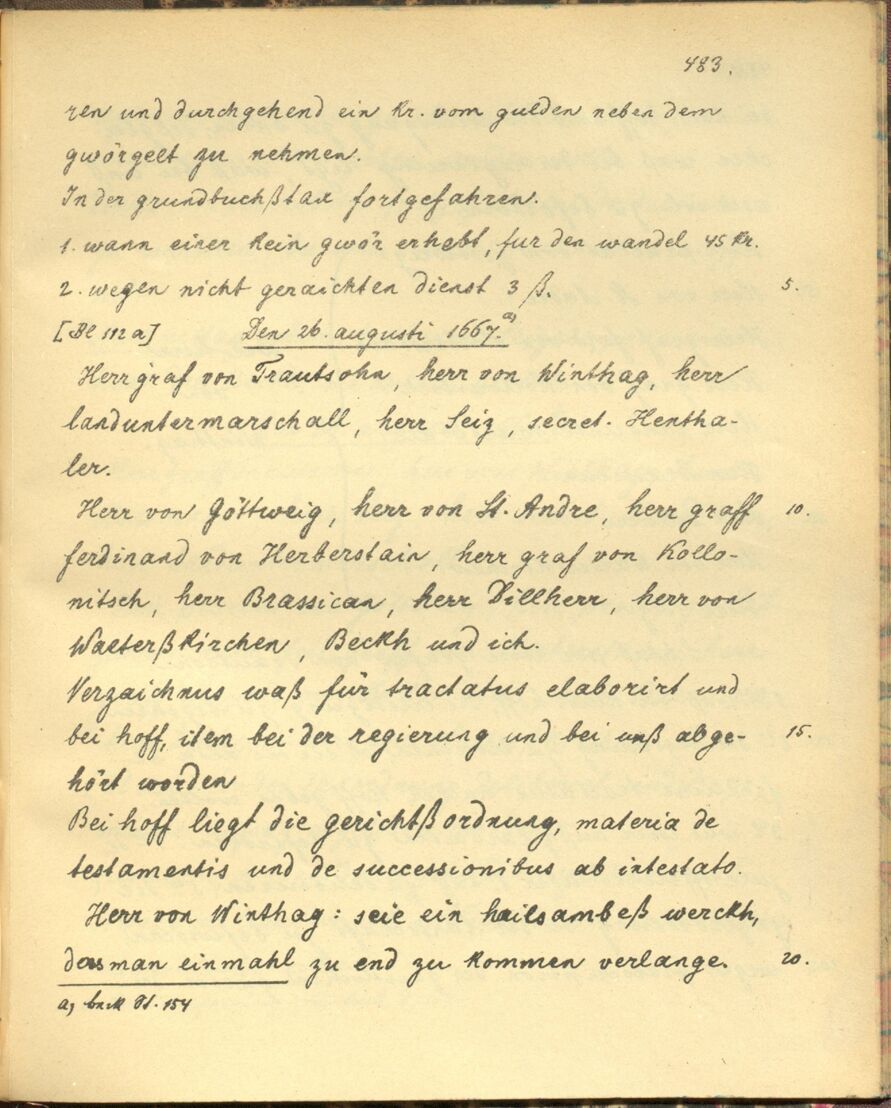 483.
ren und durchgehend ein kr. vom gulden neben dem
gwörgelt zu nehmen.
In der grundbuchßtax fortgefahren.
1. wann einer kein gwör erhebt, für den wandel 45 kr.
2. wegen nicht geraichten dienst 3 ß. 5.
[Bl 112 a] Den 26. augusti 1667. a)
Herr graf von Trautsohn, herr von Winthag, herr
landuntermarschall, herr Seiz, secret. Hentha-
ler.
Herr von Göttweig, herr von St. Andre, herr graff 10.
ferdinand von Herberstain, herr graf von Kollo-
nitsch, herr Brassican, herr Dillherr, herr von
Walterßkirchen, Beckh und ich.
Verzaichnus waß für tractatus elaborirt und
bei hoff, item bei der regierung und bei unß abge- 15.
hört worden
Bei hoff liegt die gerichtßordnung, materia de
testamentis und de successionibus ab intestato.
Herr von Winthag: seie ein hailsambeß werckh,
das man einmahl zu end zu kommen verlange. 20.
a) 154